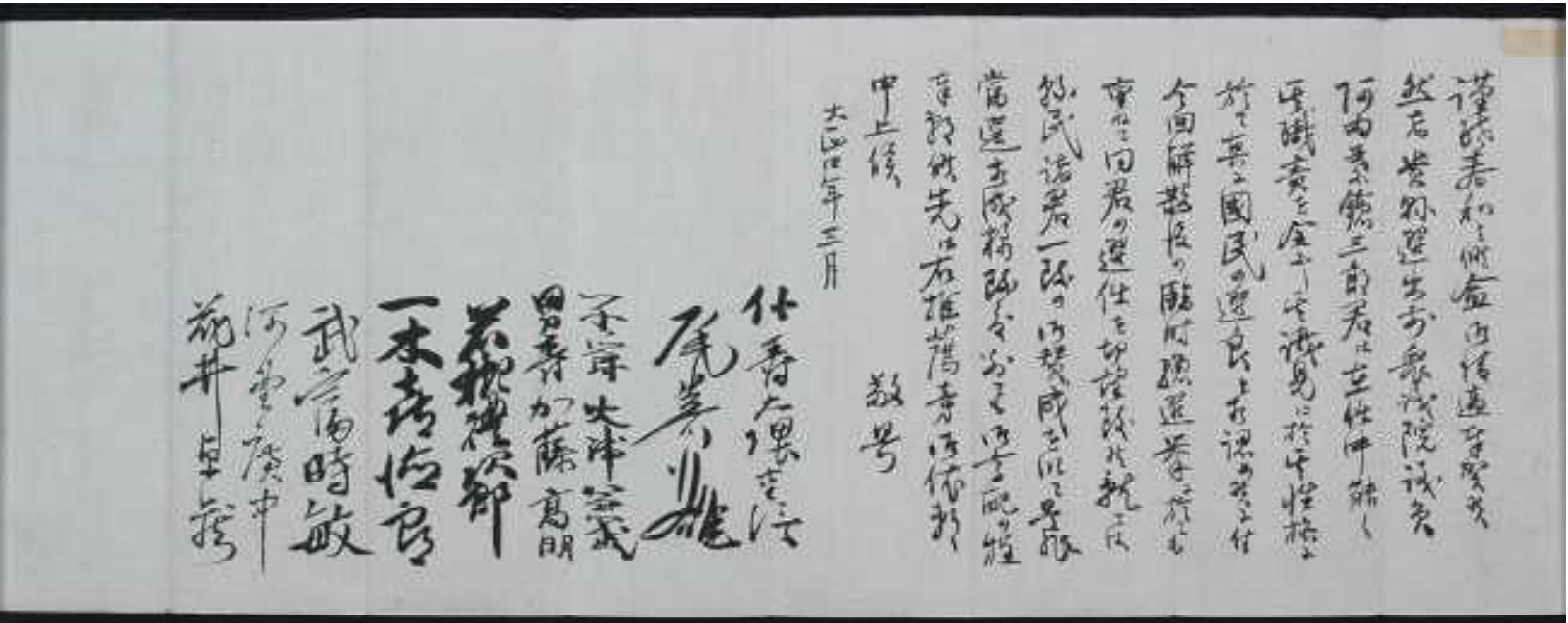 謹啓春和之候益御清適奉賀候
然者貴県選出前衆議院議員
阿由葉鎗三郎君は在任中能く
其職責を全ふし其識見に於て其性格に
於て真に国民の選良と存認め候に付
今回解散後の臨時総選挙に於ても
重ねて同君の選任を切望致候就ては
県民諸君一致の御賛成を以て最優
当選を成揚致候様御高配の程
奉願候先は右推薦旁御依頼
申上候 敬具
大正四年三月
伯爵大隈重信
尾崎行雄
子爵大浦兼武
男爵加藤高明
若槻礼次郎
一木喜徳郎
武富時敏
河野広中
花井卓蔵